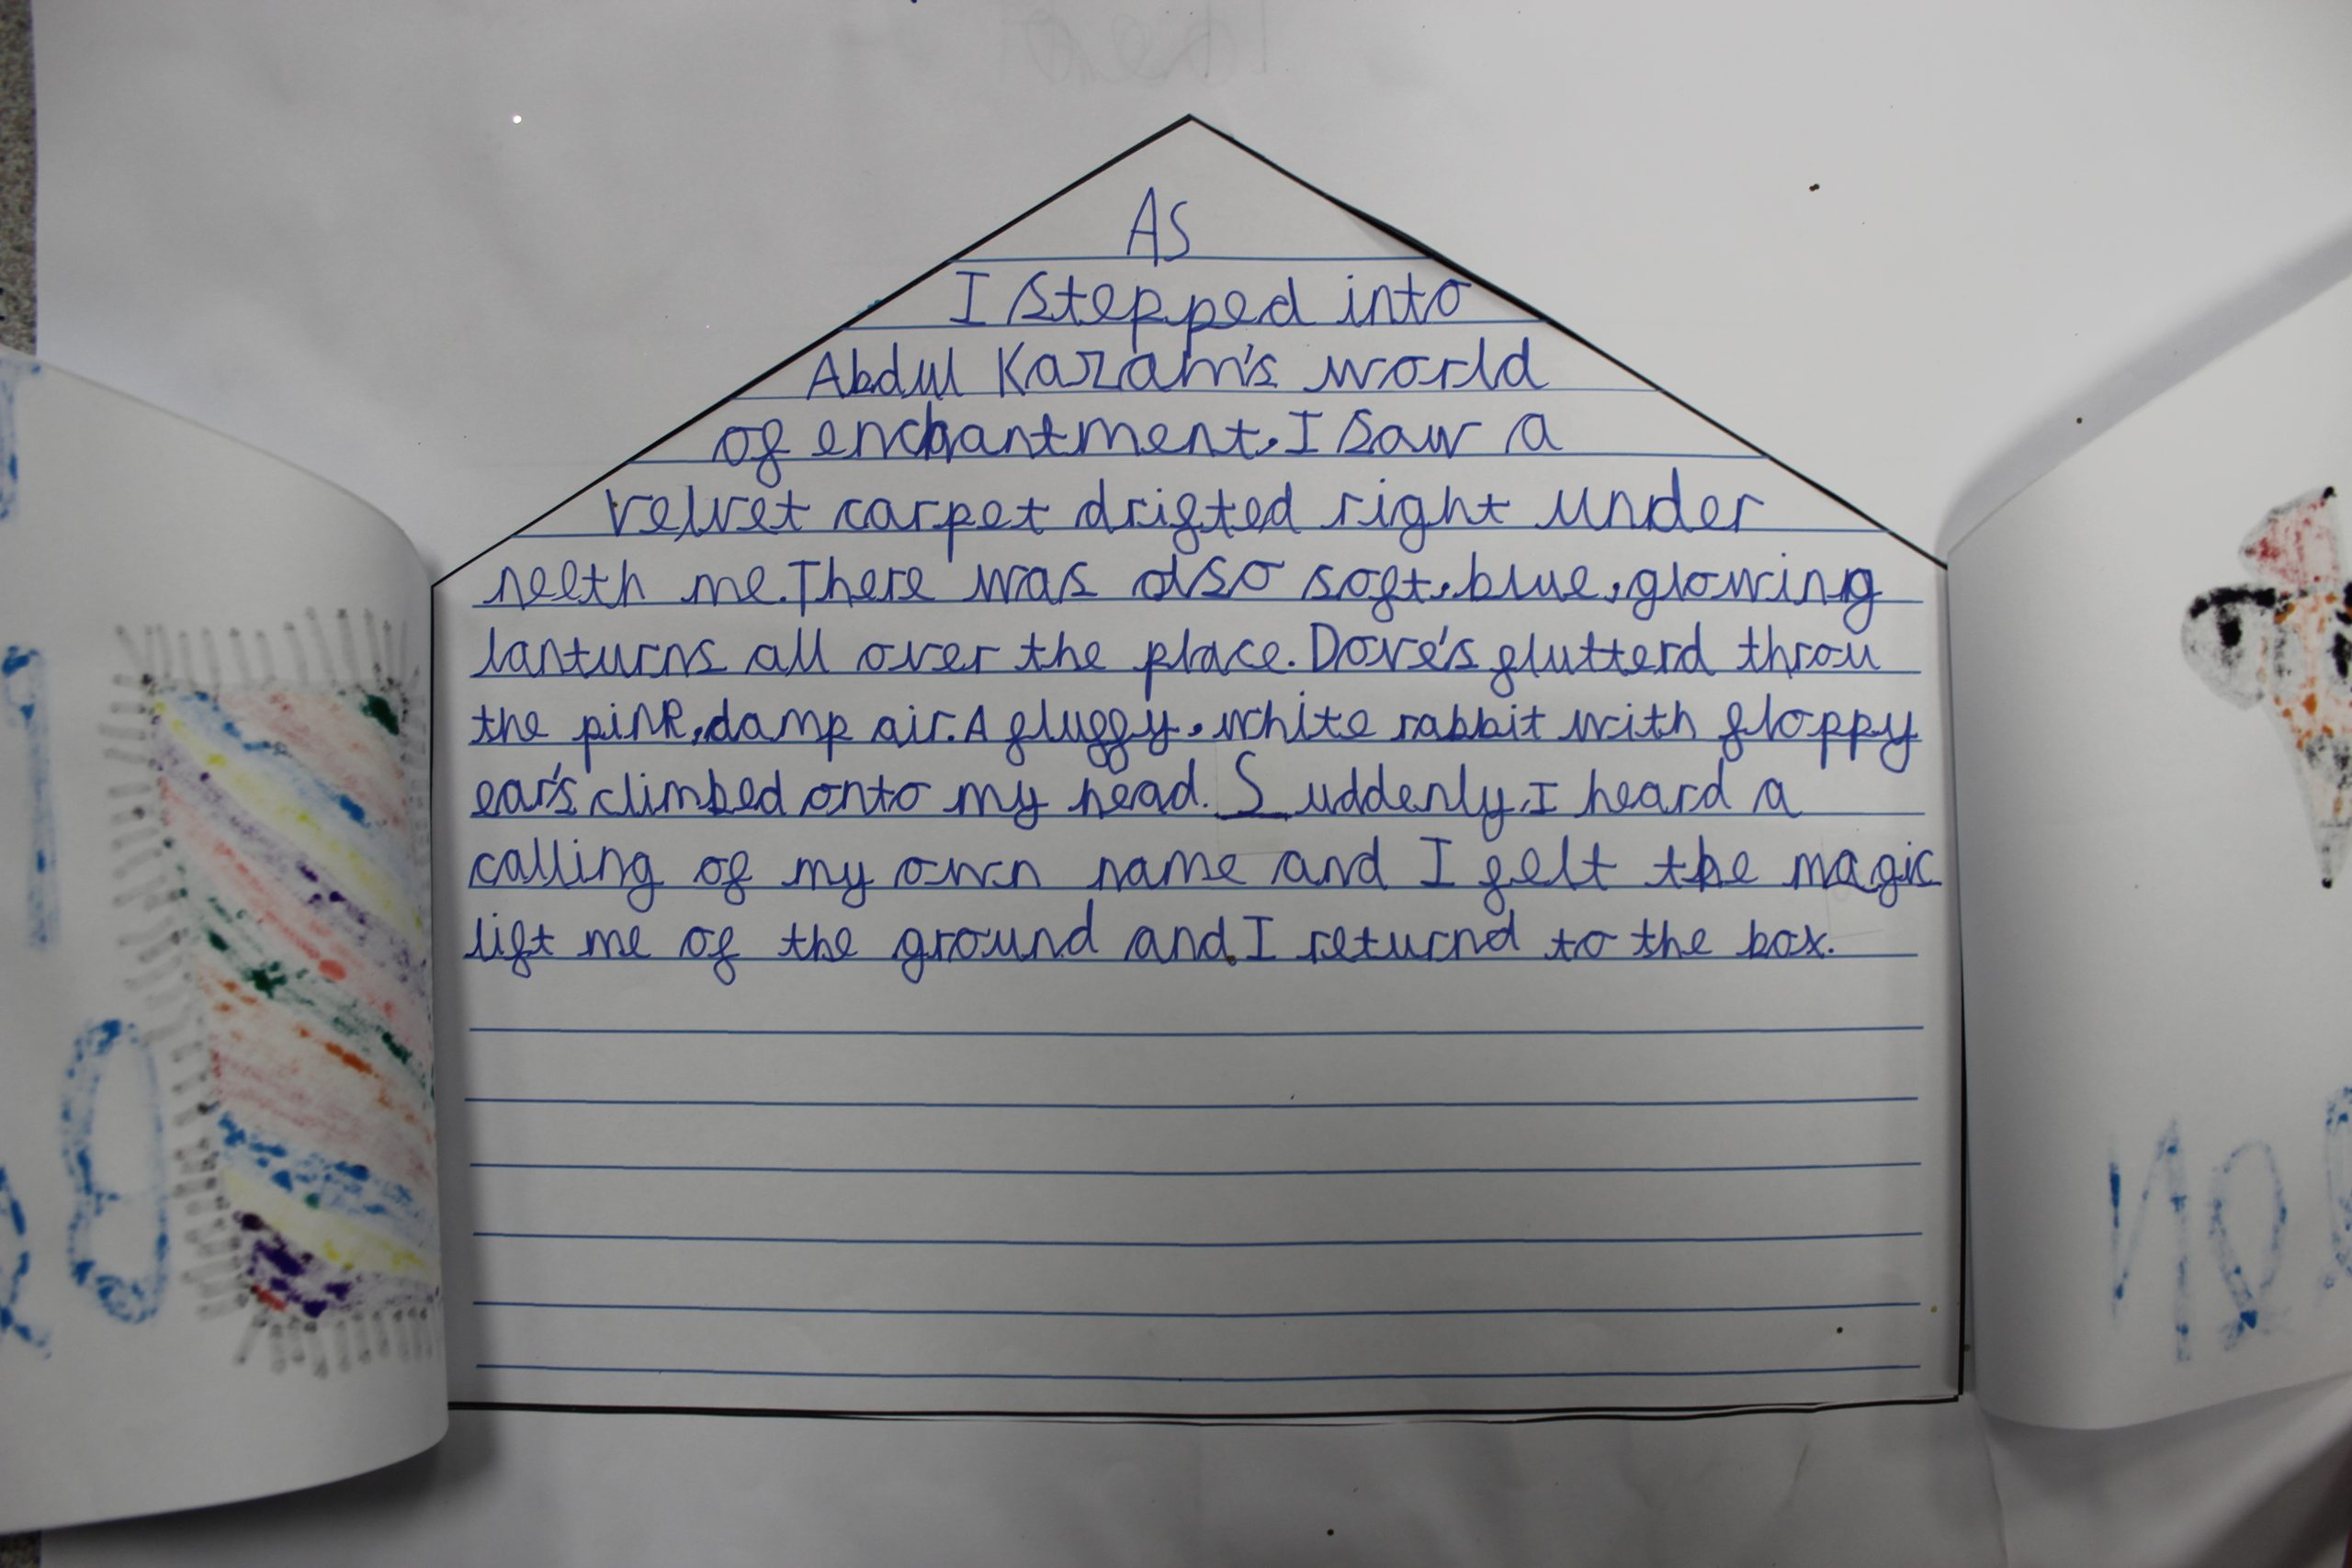 As
I stepped into
Abdul Kazam's world
of enchantment, I saw a
velvet carpet drifted right under
neeth me. There was also soft, blue, glowing
lanturns all over the place. Dove's flutterd throu
the pink, damp air. A fluffy, white rabbit with floppy
ear's climbed onto my head. Suddenly, I heard a
calling of my own name and I felt the magic
lift me of the ground and, I returnd to the box.